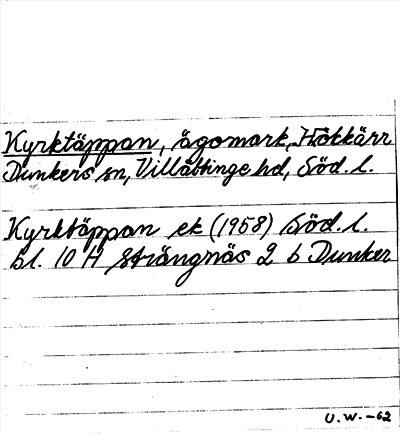 Kyrktäppan, ägomark, Hökkärr
Dunkers sn, Villåttinge hd, Söd. l.
Kyrktäppan ek (1958) Söd. l.
bl. 10 H Strängnäs 2 b Dunker
U.W.-62